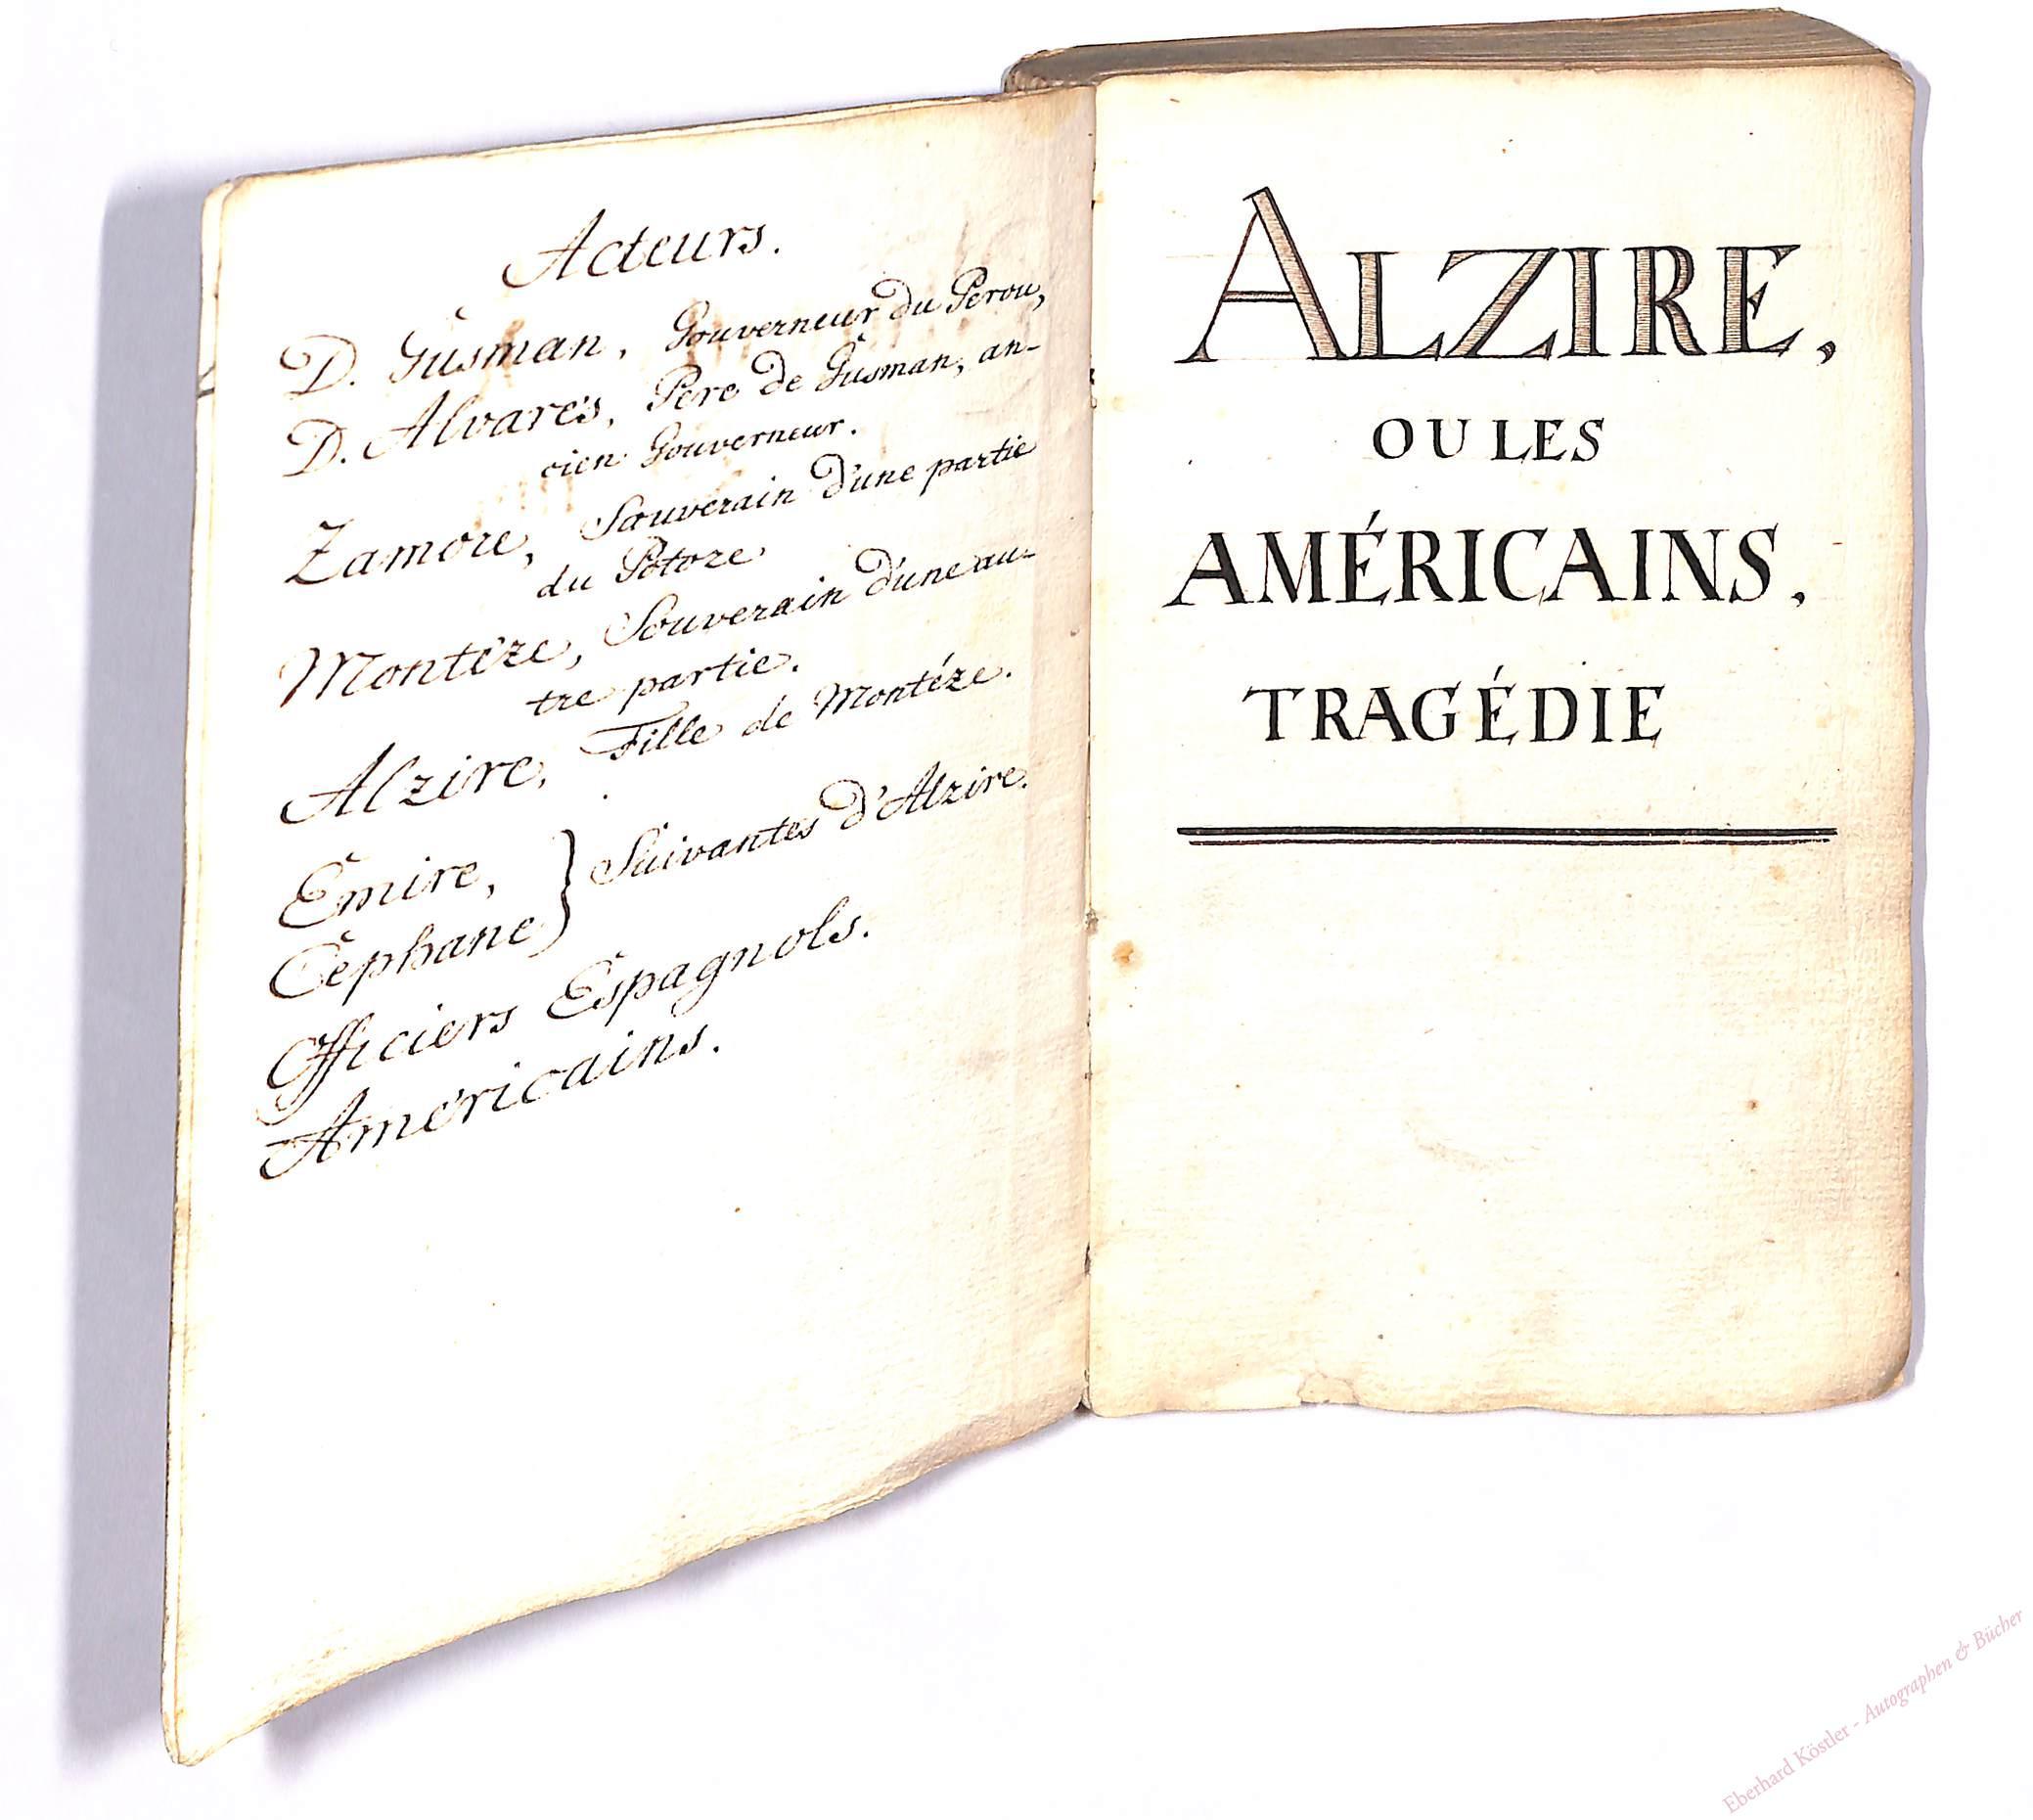 Acteurs.
D. Gusman, Gouverneur du Perou,
D. Alvarés, Pere de Gusman, an-
cien Gouverneur.
Zamore, Souverain d'une partie
du Potoze
Montéze, Souverain d'une au-
tre partie.
Alzire, Fille de Montéze.
Émire,
Céphane } Suivantes d'Alzire.
Officiers Espagnols.
Américains.
ALZIRE,
OU LES
AMÉRICAINS,
TRAGÉDIE
Eberhard Köstler - Autographen & Bücher